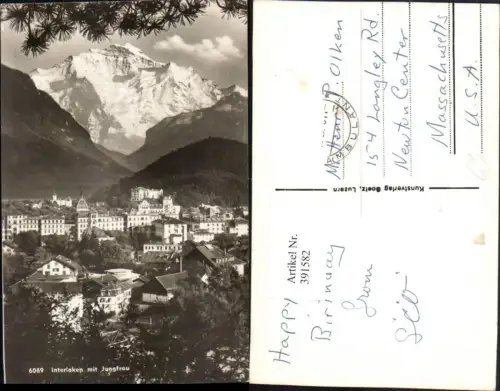 6069 Interlaken mit Jungfrau
Mr. Henry P. Olken
154 Langley Rd.
Newton Center
Massachusetts
U.S.A.
Kunstverlag Goetz, Luzern
Artikel Nr.
391582
Happy
Birinway
from